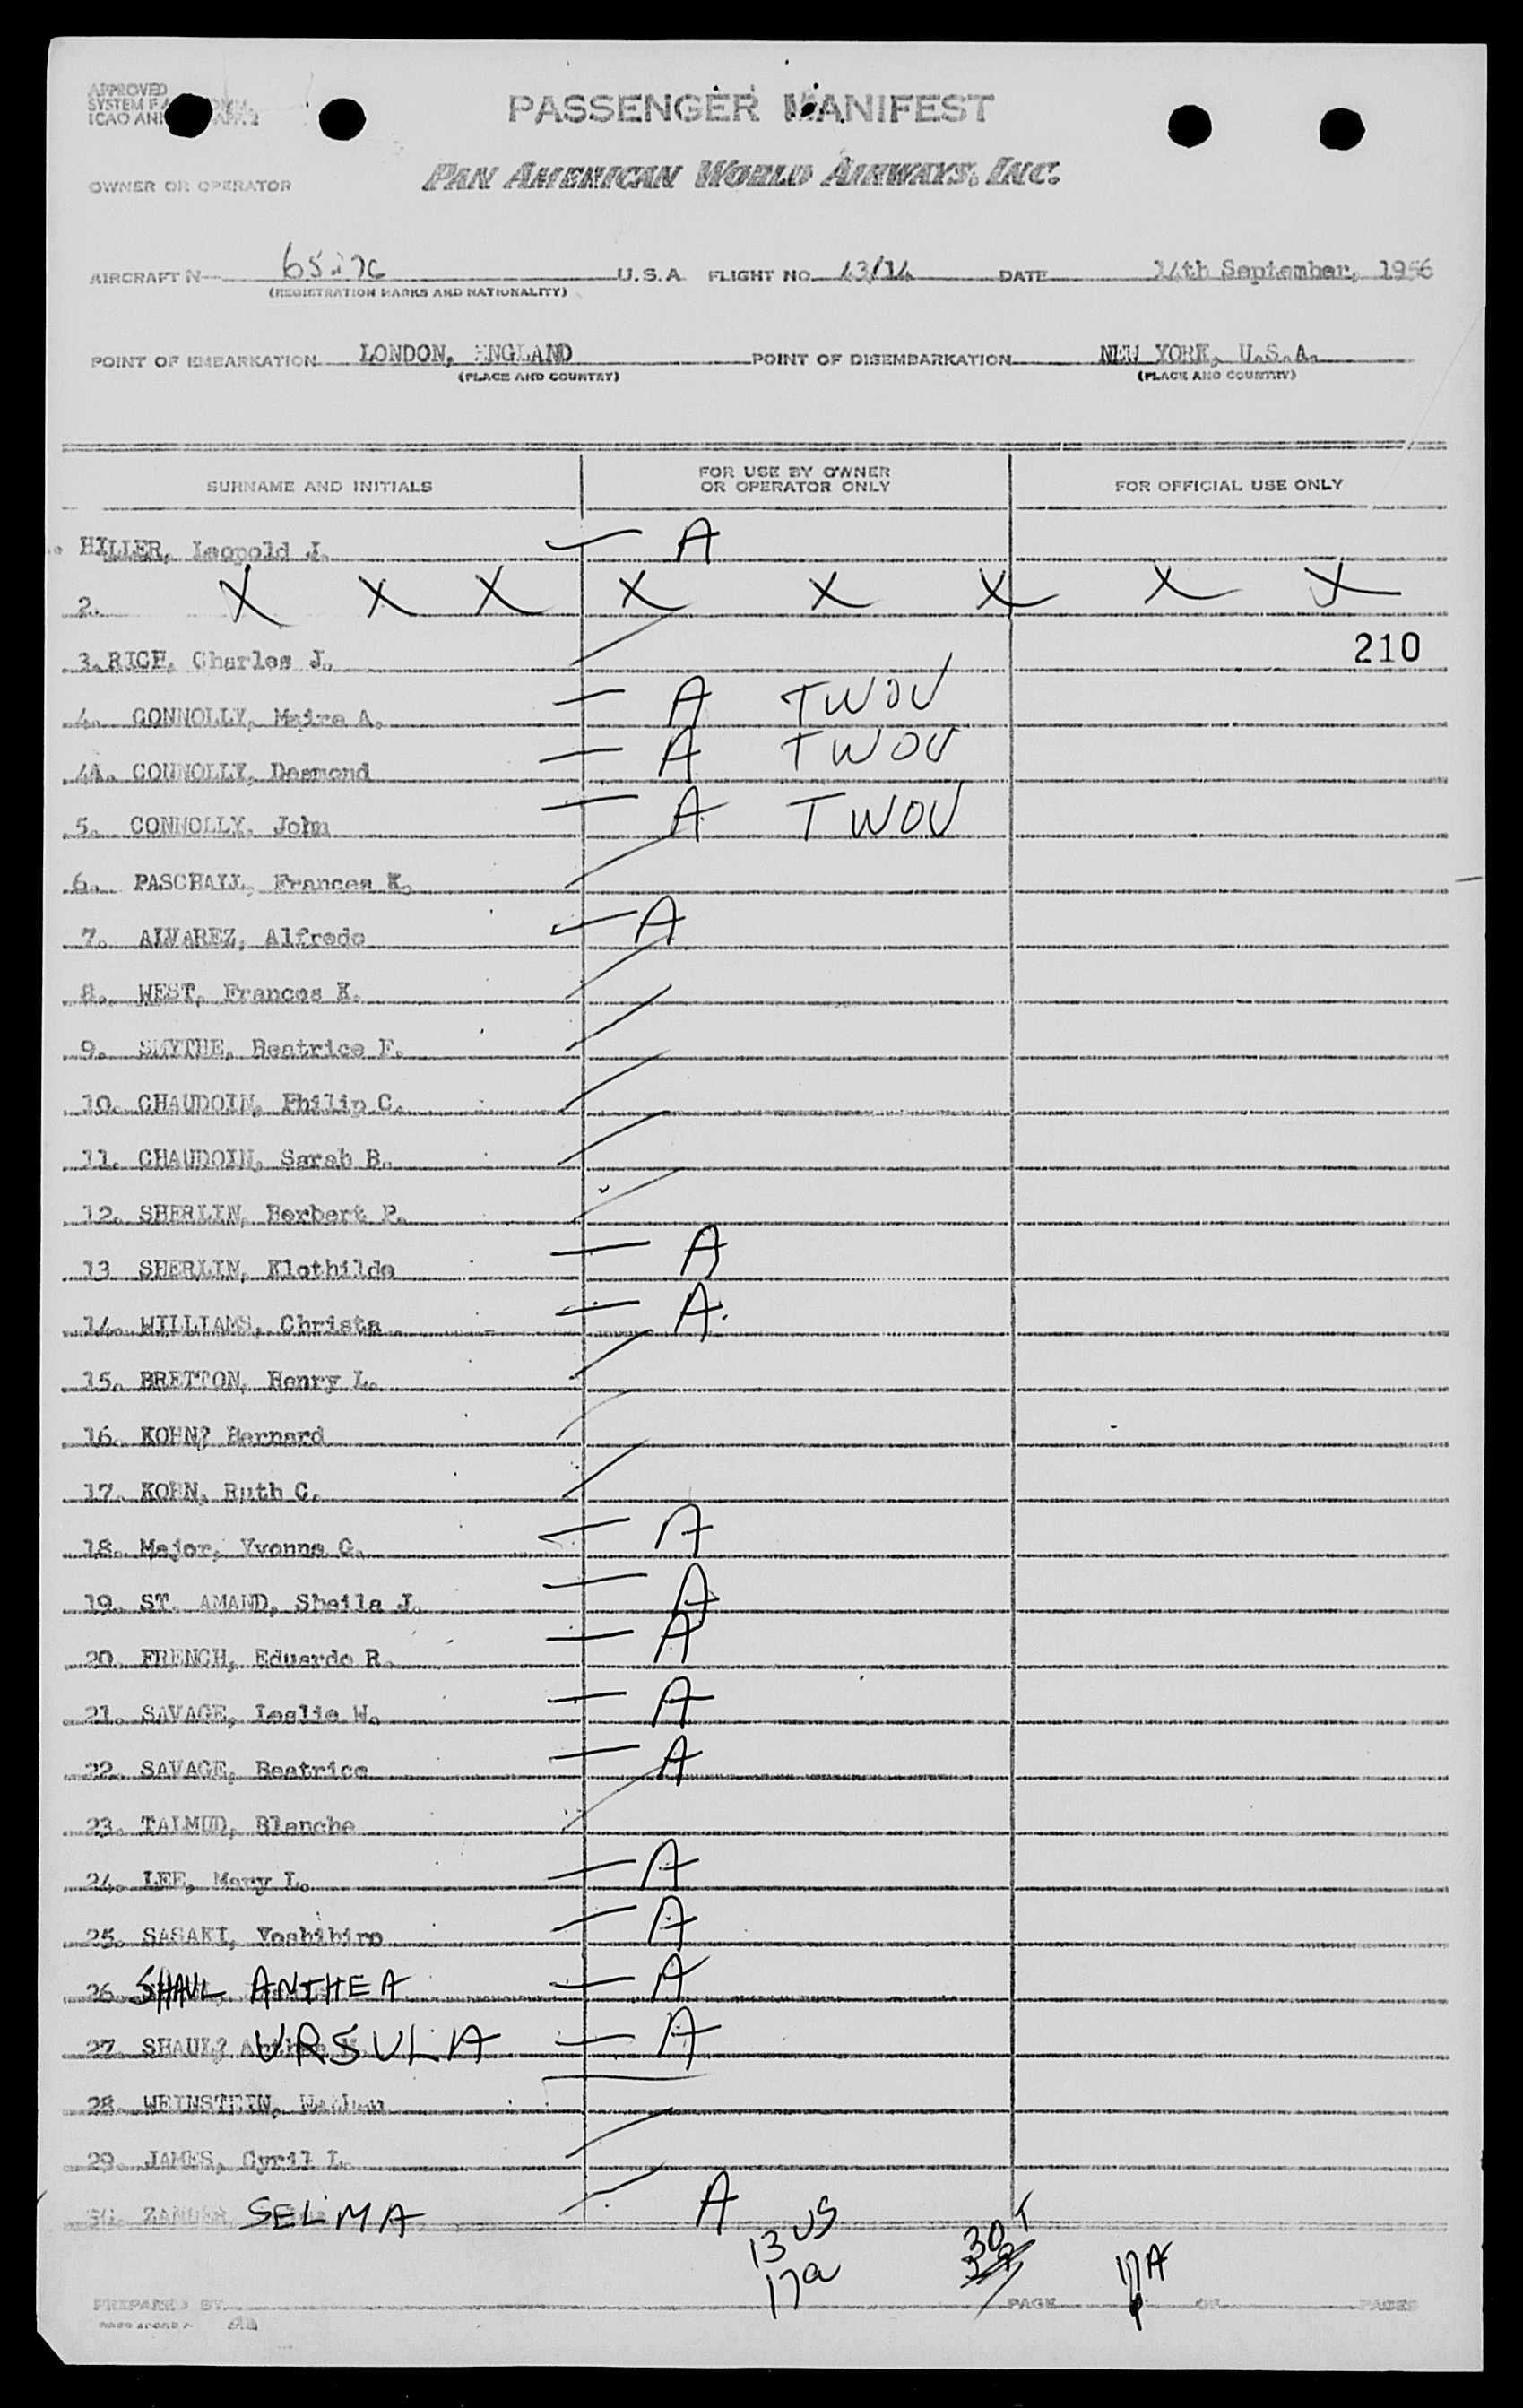 APPROVED
SYSTEM F
ICAO
PASSENGER MANIFEST
PAN AMERICAN WORLD AIRWAYS, INC.
OWNER OR OPERATOR
AIRCRAFT N U.S.A. FLIGHT NO. 43/14 DATE 14th September, 1956
(REGISTRATION MARKS AND NATIONALITY)
POINT OF EMBARKATION LONDON, ENGLAND POINT OF DISEMBARKATION NEW YORK, U.S.A.
(PLACE AND COUNTRY) (PLACE AND COUNTRY)
SURNAME AND INITIALS FOR USE BY OWNER OR OPERATOR ONLY FOR OFFICIAL USE ONLY
HILLER, Leopold J. A
2. X X X X X X X X
3. RICH, Charles J. 210
4. CONNOLLY, Maire A. A TWOV
4A. CONNOLLY, Desmond A TWOV
5. CONNOLLY, John A TWOV
6. PASCHALL, Frances K.
7. ALVAREZ, Alfredo A
8. WEST, Frances K.
9. SMYTHE, Beatrice F.
10. CHAUDOIN, Philip C.
11. CHAUDOIN, Sarah B.
12. SHERLIN, Herbert P.
13 SHERLIN, Klothilde A
14. WILLIAMS, Christa A.
15. BRETTON, Henry L.
16. KOHN? Bernard
17. KOHN, Ruth C.
18. Major, Yvonne G. A
19. ST. AMAND, Sheila J. A
20. FRENCH, Eduardo R. A
21. SAVAGE, Leslie W. A
22. SAVAGE, Beatrice A
23. TALMUD, Blanche
24. LEE, Mary L. A
25. SASAKI, Yoshihiro A
26. SHAUL ANTHEA A
27. SHAUL? URSULA A
28. WEINSTEIN,
29. JAMES, Cyril L.
30. ZANDER SELMA A
13 US 30 T
17a 17A
PREPARED BY PAGE OF PAGES